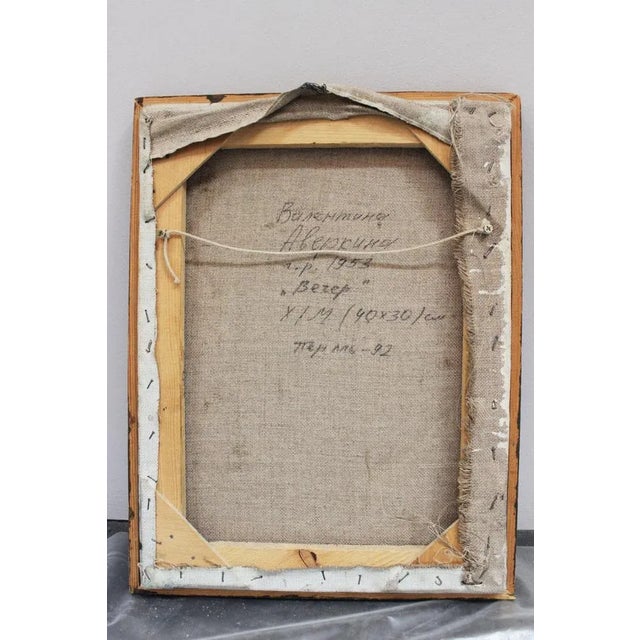 Валентина
Аверкина
г.р. 1953
„Вечер"
Х/М (40х30) см
Пермь-92